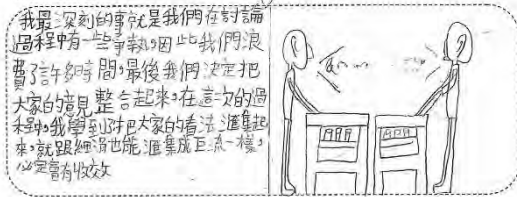 我最深刻的事就是我們在討論
過程中有一些爭執,因此我們浪
費了許多時間,最後我們決定把
大家的意見整合起來,在這次的過
程中,我學到了把大家的看法匯集起
來,就跟細涓也能匯集成巨流一樣,
必定會有收效